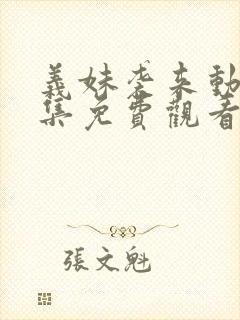 義妹袭来動
集免費觀看
張文魁